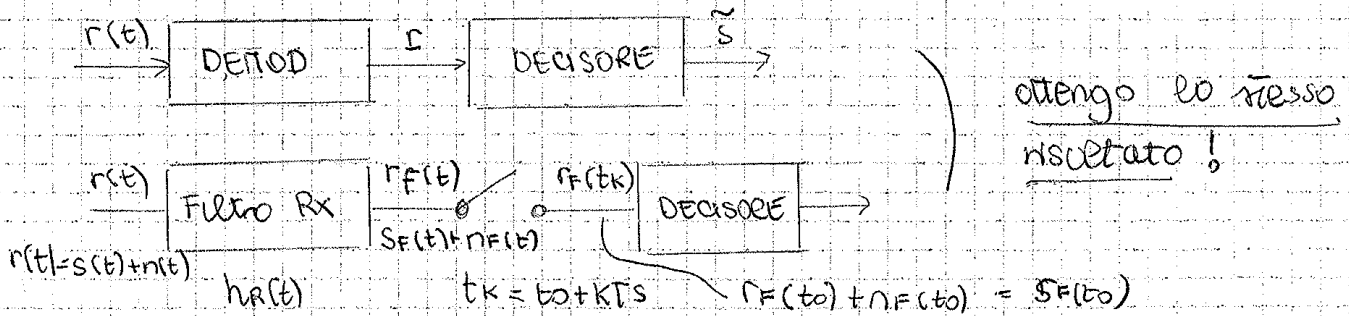 r(t) DEMOD r DECISORE s̃
ottengo lo stesso
risultato !
r(t) Filtro Rx rF(t) rF(tk) DECISORE
SF(t)+nF(t)
r(t)=s(t)+n(t)
hR(t) tk = to+kTs rF(to)+nF(to) = SF(to)